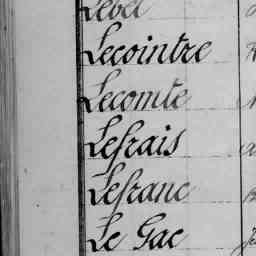 Lebel
Lecointre
Lecomte
Lefrais
Lefranc
Le Gac